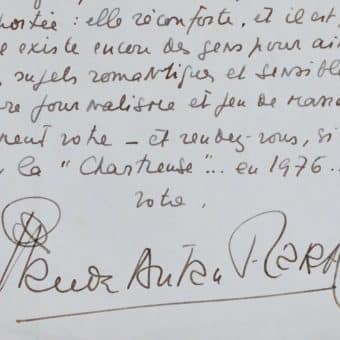 portée : elle réconforte, et il est
e existe encore des gens pour aim
sujets romantiques et sensible
re journalisme et jeu de massa
ment votre — et rendez-vous, si
la "Chartreuse"... en 1976...
votre.
Claude Autan-Lara